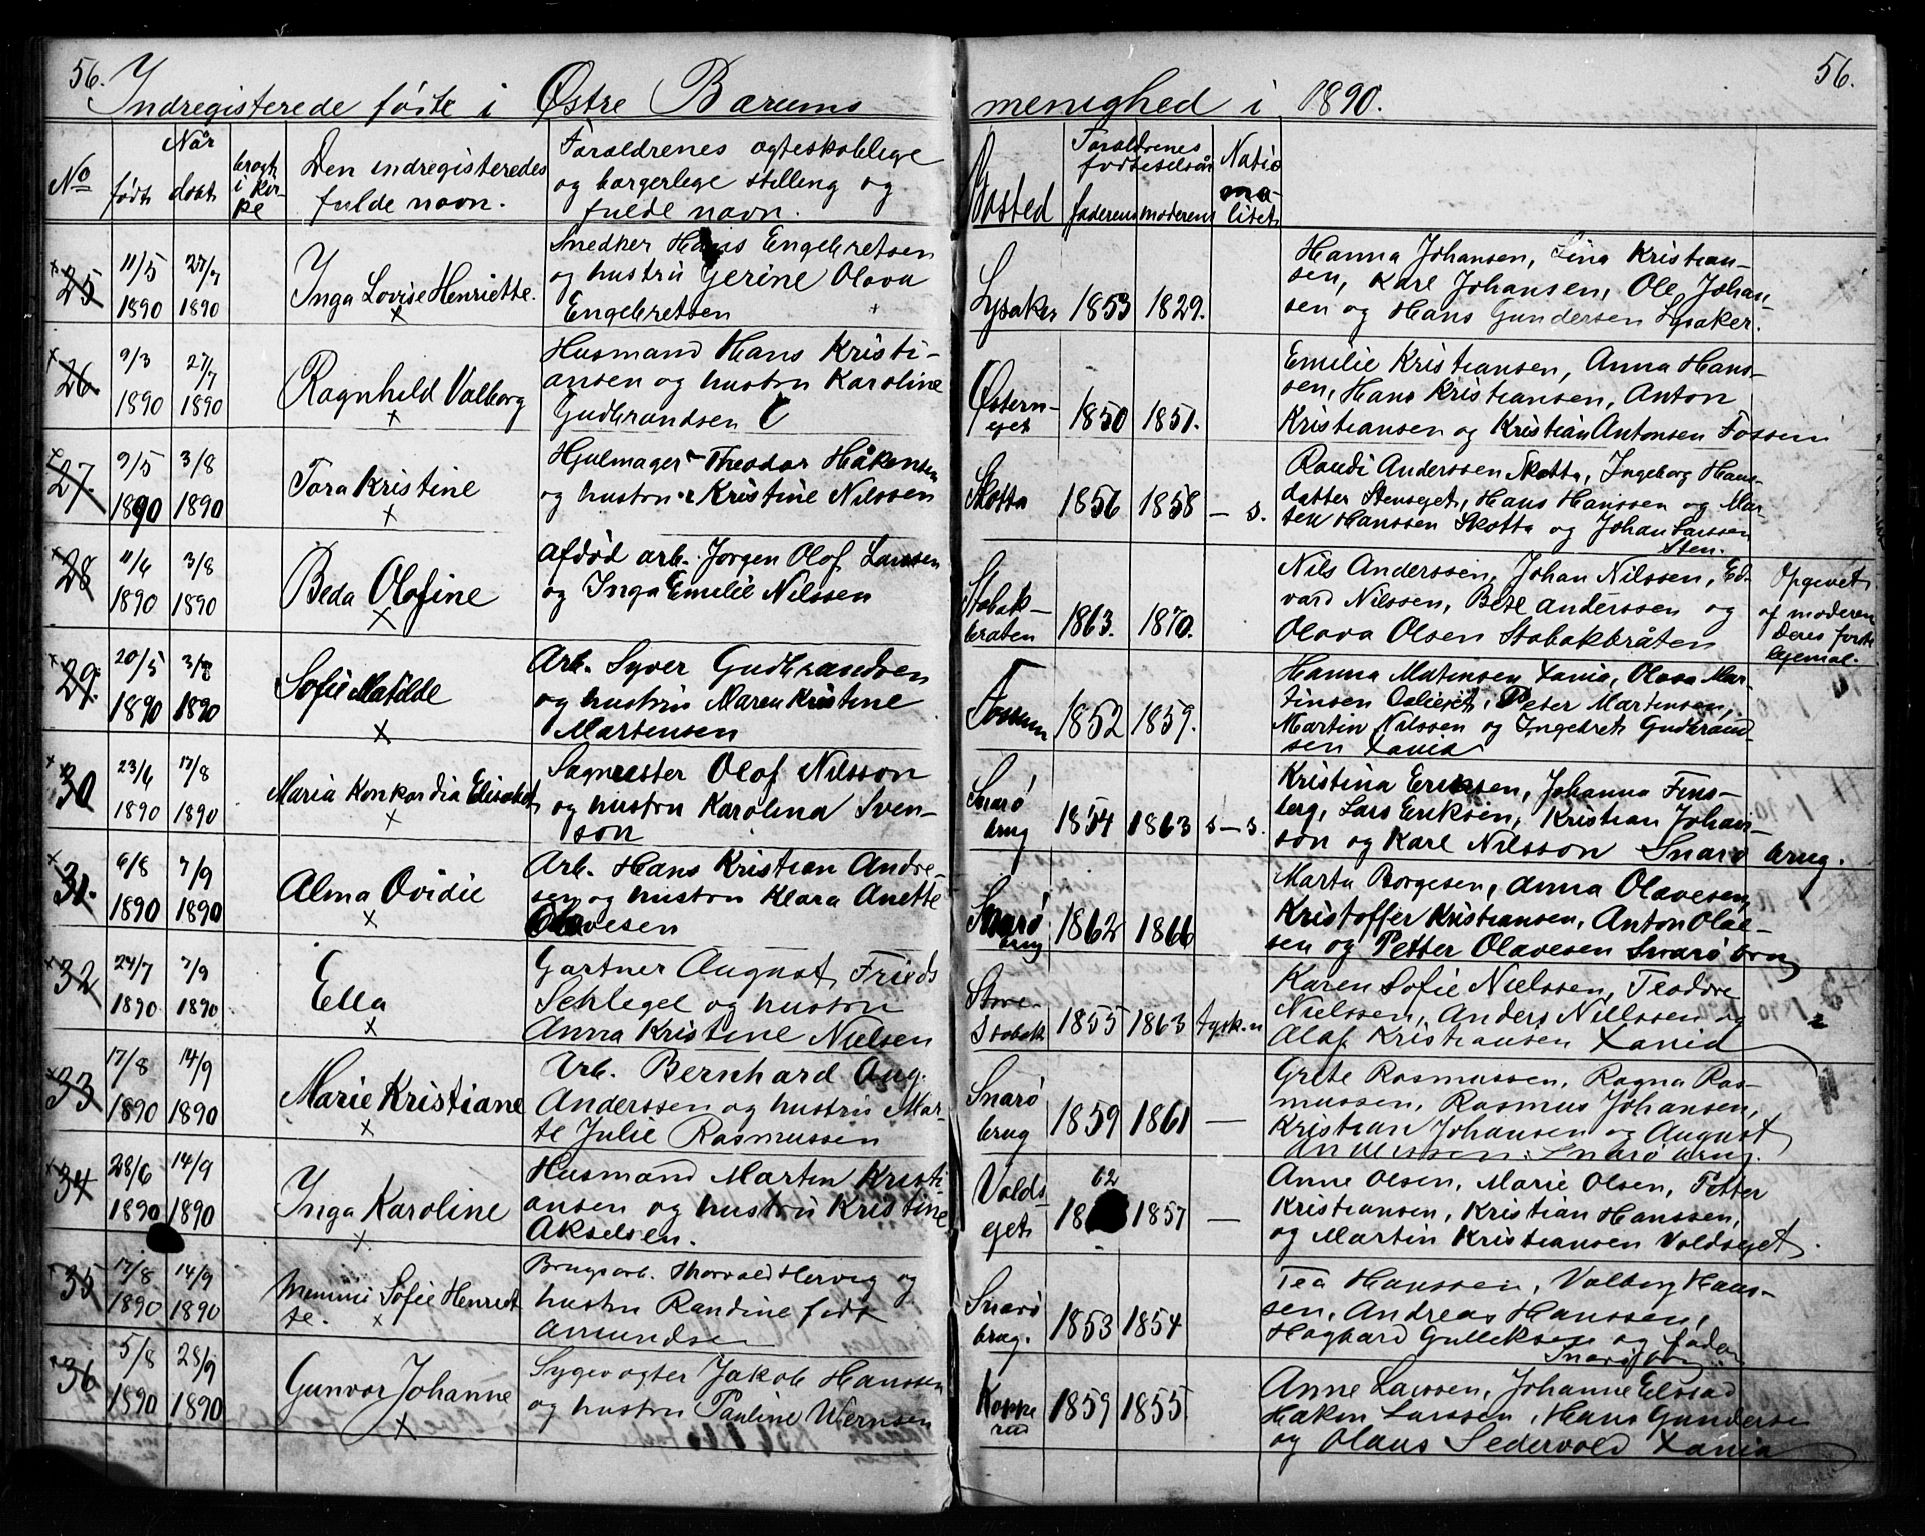 56.
Indregisterede føste i Østre Bærums
menighed i 1890.
56.
No
Når
født
døbt
bragt i kirke
Den indregisteredes fulde navn.
Foraldrenes ægteskablige og borgerlege stilling og fulde navn.
Bosted
Foraldrenes fødselsår
faderens
moderens
Natio
na-
litet
25
11/5 1890
27/7 1890
Inga Lovise Henriette.
Snedker Hans Engebretsen
og hustru Gerine Olava
Engebretsen
Lysaker
1853
1829.
Hanna Johansen, Lina Kristian-
sen, Karl Johansen, Ole Johan-
sen og Hans Gundersen Lysaker.
26
9/3 1890
27/7 1890
Ragnhild Valborg
Husmand Hans Kristi-
ansen og hustru Karoline
Gudbrandsen
Østern-
eget
1850
1851.
Emilie Kristiansen, Anna Hans-
sen, Hans Kristiansen, Anton
Kristiansen og Kristian Antonsen Fossum
27.
9/5 1890
3/8 1890
Tora Kristine
Hjulmager Theodor Håkensen
og hustru Kristine Nilssen
Skotta
1856
1858
— s.
Randi Anderssen Skotta, Ingeborg Hans-
datter Stenseget, Hans Hanssen og Mar
ten Hanssen Skotta og Johan Larssen
Sten.
28
11/6 1890
3/8 1890
Beda Olofine
Afdød arb. Jorgen Olof Larssen
og Inga Emilie Nilssen
Stabak-
braten
1863.
1870.
Nils Anderssen, Johan Nilssen, Ed-
vard Nilssen, Bete Anderssen og
Olava Olsen Stabakbråten
Opgevet
af moderen
Deres første
legemal.
29.
20/5 1890
3/8 1890
Sofie Matilde
Arb. Syver Gudbrandsen
og hustru Maren Kristine
Martensen
Fossum
1852
1859.
Hanna Matensen Xania, Olava Mar-
tinsen, Peter Martensen,
Martin Nilssen og Ingebret Gudbrand
sen Xania
30
23/6 1890
17/8 1890
Maria Konkordia Elisabet
Sagmester Olof Nilsson
og hustru Karolina Sven-
son
Snarø
brug
1854
1863
s — s.
Kristina Eriksen, Johanna Fins-
berg, Lars Eriksen, Kristian Johan-
son og Karl Nilsson Snarø brug.
31.
6/8 1890
7/9 1890
Alma Ovidie
Arb. Hans Kristian Andre-
sen og hustru Klara Anette
Olavesen
Snarø
brug
1862
1866
Marta Borgesen, Anna Olavesen,
Kristoffer Kristiansen, Anton Olae-
sen og Petter Olavesen Snarø brug
32
24/7 1890
7/9 1890
Ella
Gartner August Frieds
Schlegel og hustru
Anna Kristine Nielsen
Store
Stabak
1855
1863
tysk. n
Karen Sofie Nielssen, Teodore
Nielssen, Anders Nielssen og
Olaf Kristiansen Xania
33
17/8 1890
14/9 1890
Marie Kristiane
Arb. Bernhard Aug.
Anderssen og hustru Mar-
te Julie Rasmussen
Snarø
brug
1859
1861
—
Grete Rasmussen, Ragna Ras-
mussen, Rasmus Johansen,
Kristian Johansen og August
Anderssen. Snarø brug.
34
28/6 1890
14/9 1890
Inga Karoline
Husmand Martin Kristi-
ansen og hustru Kristine
Akselsen.
Volds
eget
62
18
1857
—
Anne Olsen, Marie Olsen, Petter
Kristiansen, Kristian Hanssen,
og Martin Kristiansen Voldseget.
35
17/8 1890
14/9 1890
Mimmi Sofie Henriet
te.
Brugsarb. Thorvald Hervig og
hustru Randine født
Amundsen
Snarø
brug.
1853
1854
Tea Hanssen, Valborg Hans-
sen, Andreas Hanssen,
Hagbard Gulliksen og faderen
Snarøbrug
36
5/8 1890
28/9 1890
Gunvor Johanne
Sygevogter Jakob Hanssen
og hustru Pauline Wernsen
Koppe
rud
1859
1855
Anne Larssen, Johanne Elstad
Haken Larssen, Hans Gunderse
og Olaus Sedervold Xania